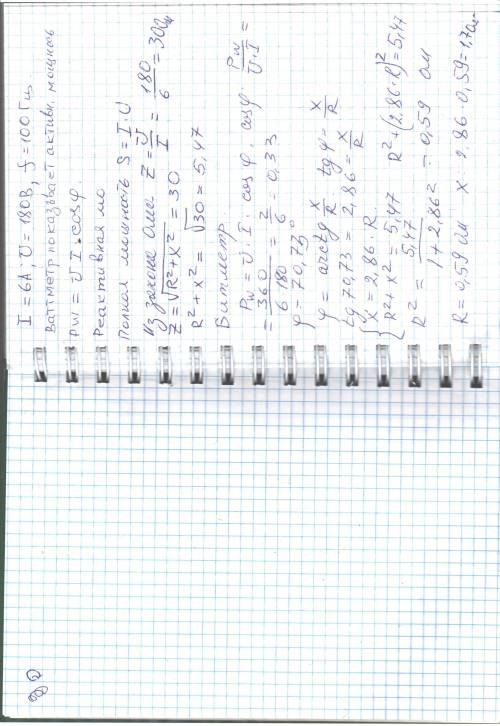 I = 6А, U = 180В, f = 100 Гц.
Ваттметр показывает активн. мощность
Pw = U I · cosφ.
Реактивная мо
Полная мощность S = I · U
Из закона Ома: Z = U/I = 180/6 = 30 Ом
Z = √(R² + X²) = 30
R² + X² = √30 = 5,47
Ваттметр
Pw = U · I · cosφ. cosφ = Pw/(U·I) =
= 360/(6·180) = 2/6 = 0,33
φ = 70,73°
φ = arctg X/R tgφ = X/R
tg 70,73 = 2,86 = X/R
{ X = 2,86 · R
R² + X² = 5,47 R² + (2,86·R)² = 5,47
R² = 5,47/(1 + 2,86²) = 0,59 Ом
R = 0,59 Ом X = 2,86·0,59 = 1,7 Ом